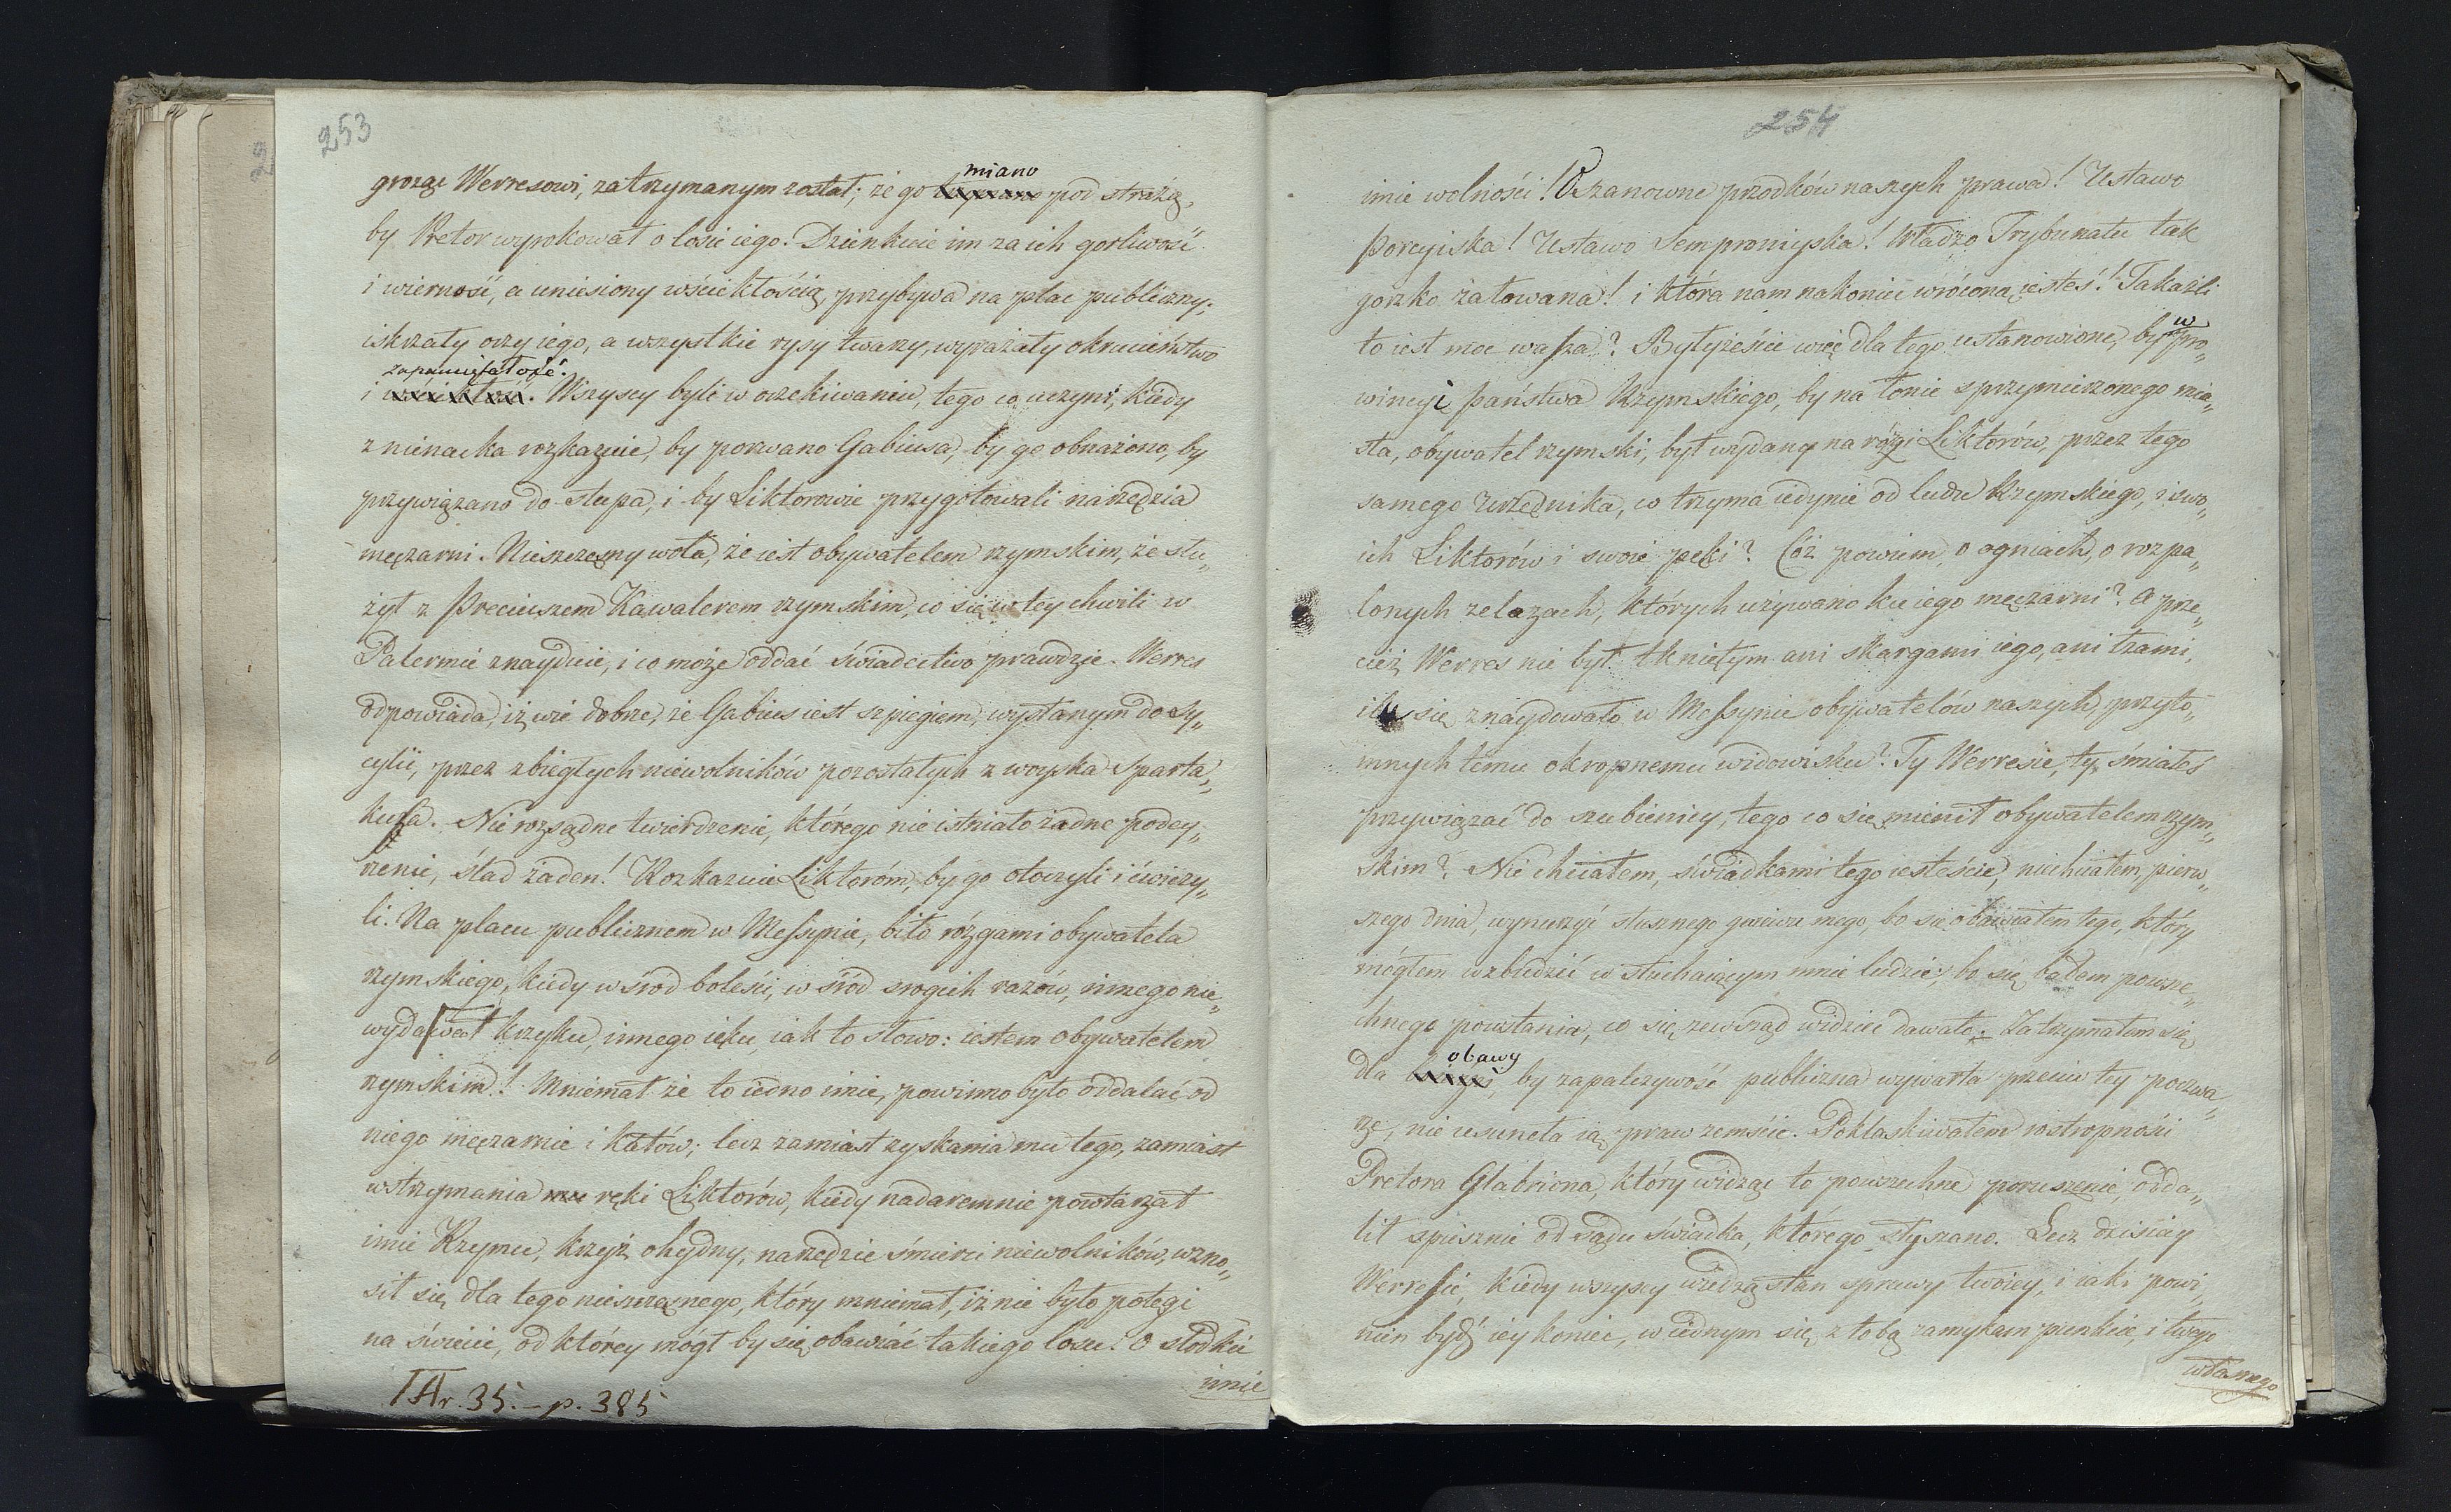 253
miano
grożąc Werresowi, zatrzymanym został; że go pod strażą,
by Pretor wyrokował o losie iego. Dziękuie im za ich gorliwość
i wierność, a uniesiony wściekłością przybywa na plac publiczny;
iskrzały oczy iego, a wszystkie rysy twarzy, wyrażały okrucieństwo
zapamiętałość.
i wściekłość. Wszyscy byli w oczekiwaniu, tego co uczyni, kiedy
znienacka rozkazuie, by porwano Gabiusa, by go obnażono, by
przywiązano do słupa, i by Liktorowie przygotowali narzędzia
męczarni. Nieszczęsny woła, że iest obywatelem rzymskim, że słu„
żył z Preciuszem Kawalerem rzymskim, co się w tey chwili w
Palermie znayduie, i co może oddać świadectwo prawdzie. Werres
odpowiada, iż wie dobrze, że Gabius iest szpiegiem, wysłanym do Sy„
cylii, przez zbiegłych niewolników pozostałych z woyska Sparta„
kusa. Nie rozsądne twierdzenie, którego nie istniało żadne podey„
rzenie, ślad żaden! Rozkazuie Liktoróm, by go otoczyli i ćwiczy„
li. Na placu publicznem w Messynie, bito rózgami obywatela
rzymskiego, kiedy wśród boleści, w śród srogich razów, innego nie„
wydawał krzyku, innego ięku, iak to słowo: iestem obywatelem
rzymskim! Mniemał że to iedno imie, powinno było oddalać od
niego męczarnie i katów; lecz zamiast zyskania mu tego, zamiast
wstrzymania mu ręki Liktorów, kiedy nadaremnie powtarzał
imie Rzymu, krzyż ohydny, narzędzie śmierci niewolników, wzno„
sił się dla tego nieszczęsnego, który mniemał, iż nie było potęgi
na świecie, od którey mógł by się obawiać takiego losu. O słodkie
imie
Tr. 35. – p. 385
254
imie wolności! O Szanowne przodków naszych prawa! Ustawo
Porcyiska! Ustawo Semproniyska! Władzo Trybunatu tak
gorzko żałowana! i która nam nakoniec wrócona iesteś! Takaźli
to iest moc wasza? Byłyżeście więc dla tego ustanowione, by w pro„
wincyi państwa Rzymskiego, by na łonie sprzymierzonego mia„
sta, obywatel rzymski, był wydany na rózgi Liktorów, przez tego
samego Urzędnika, co trzyma iedynie od ludu Rzymskiego, i swo„
ich Liktorów i swoie pęki? Cóż powiem, o ogniach, o rozpa„
lonych żelazach, których używano ku iego męczarni? A prze„
cież Werres nie był tkniętym ani skargami iego, ani łzami,
ilu się znaydowało w Messynie obywatelów naszych, przyto„
mnych temu okropnemu widowisku? Ty Werresie, ty śmiałeś
przywiązać do szubienicy, tego co się mienił obywatelem rzym„
skim? Nie chciałem, świadkami tego iesteście, niechciałem, pierw„
szego dnia, wynurzyć słusznego gniewu mego, bo się obawiałem tego, który
mógłem wzbudzić w słuchaiącym mnie ludzie; bo się bałem powsze„
chnego powstania, co się zewsząd widzieć dawało. Zatrzymałem się
obawy
dla , by zapalczywość publiczna wywarta przeciw tey poczwa„
rze, nie usunęła ią praw zemście. Poklaskiwałem rostropności
Pretora Glabriona, który widząc to powszechne poruszenie, odda„
lił spiesznie od sądu świadka, którego słyszano. Lecz dzisiay
Werresie, kiedy wszyscy wiedzą stan sprawy twoiey, i iaki powi„
nien bydź iey koniec, w iednym się z tobą zamykam punkcie, i twego
własnego